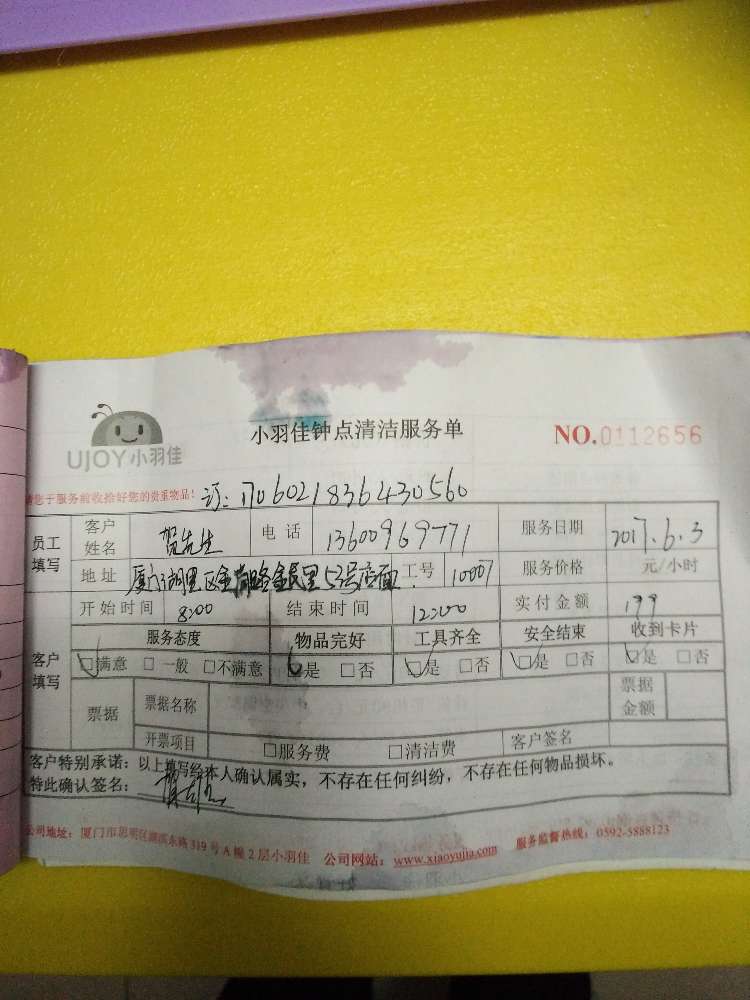 UJOY小羽佳
小羽佳钟点清洁服务单
NO.0112656
请您于服务前收拾好您的贵重物品!
订:1706021836430560
员工填写 客户姓名 贺先生 电话 13600969771 服务日期 2017.6.3
地址 厦门湖里区金尚路金民里53号店面 工号 10007 服务价格 元/小时
开始时间 8:00 结束时间 12:00 实付金额 199
客户填写 服务态度 物品完好 工具齐全 安全结束 收到卡片
□满意 □一般 □不满意 □是 □否 □是 □否 □是 □否 □是 □否
票据 票据名称 票据金额
开票项目 □服务费 □清洁费 客户签名
客户特别承诺:以上填写经本人确认属实,不存在任何纠纷,不存在任何物品损坏。
特此确认签名:
公司地址:厦门市思明区湖滨东路319号A幢2层小羽佳 公司网站:www.xiaoyujia.com 服务监督热线:0592-5888123